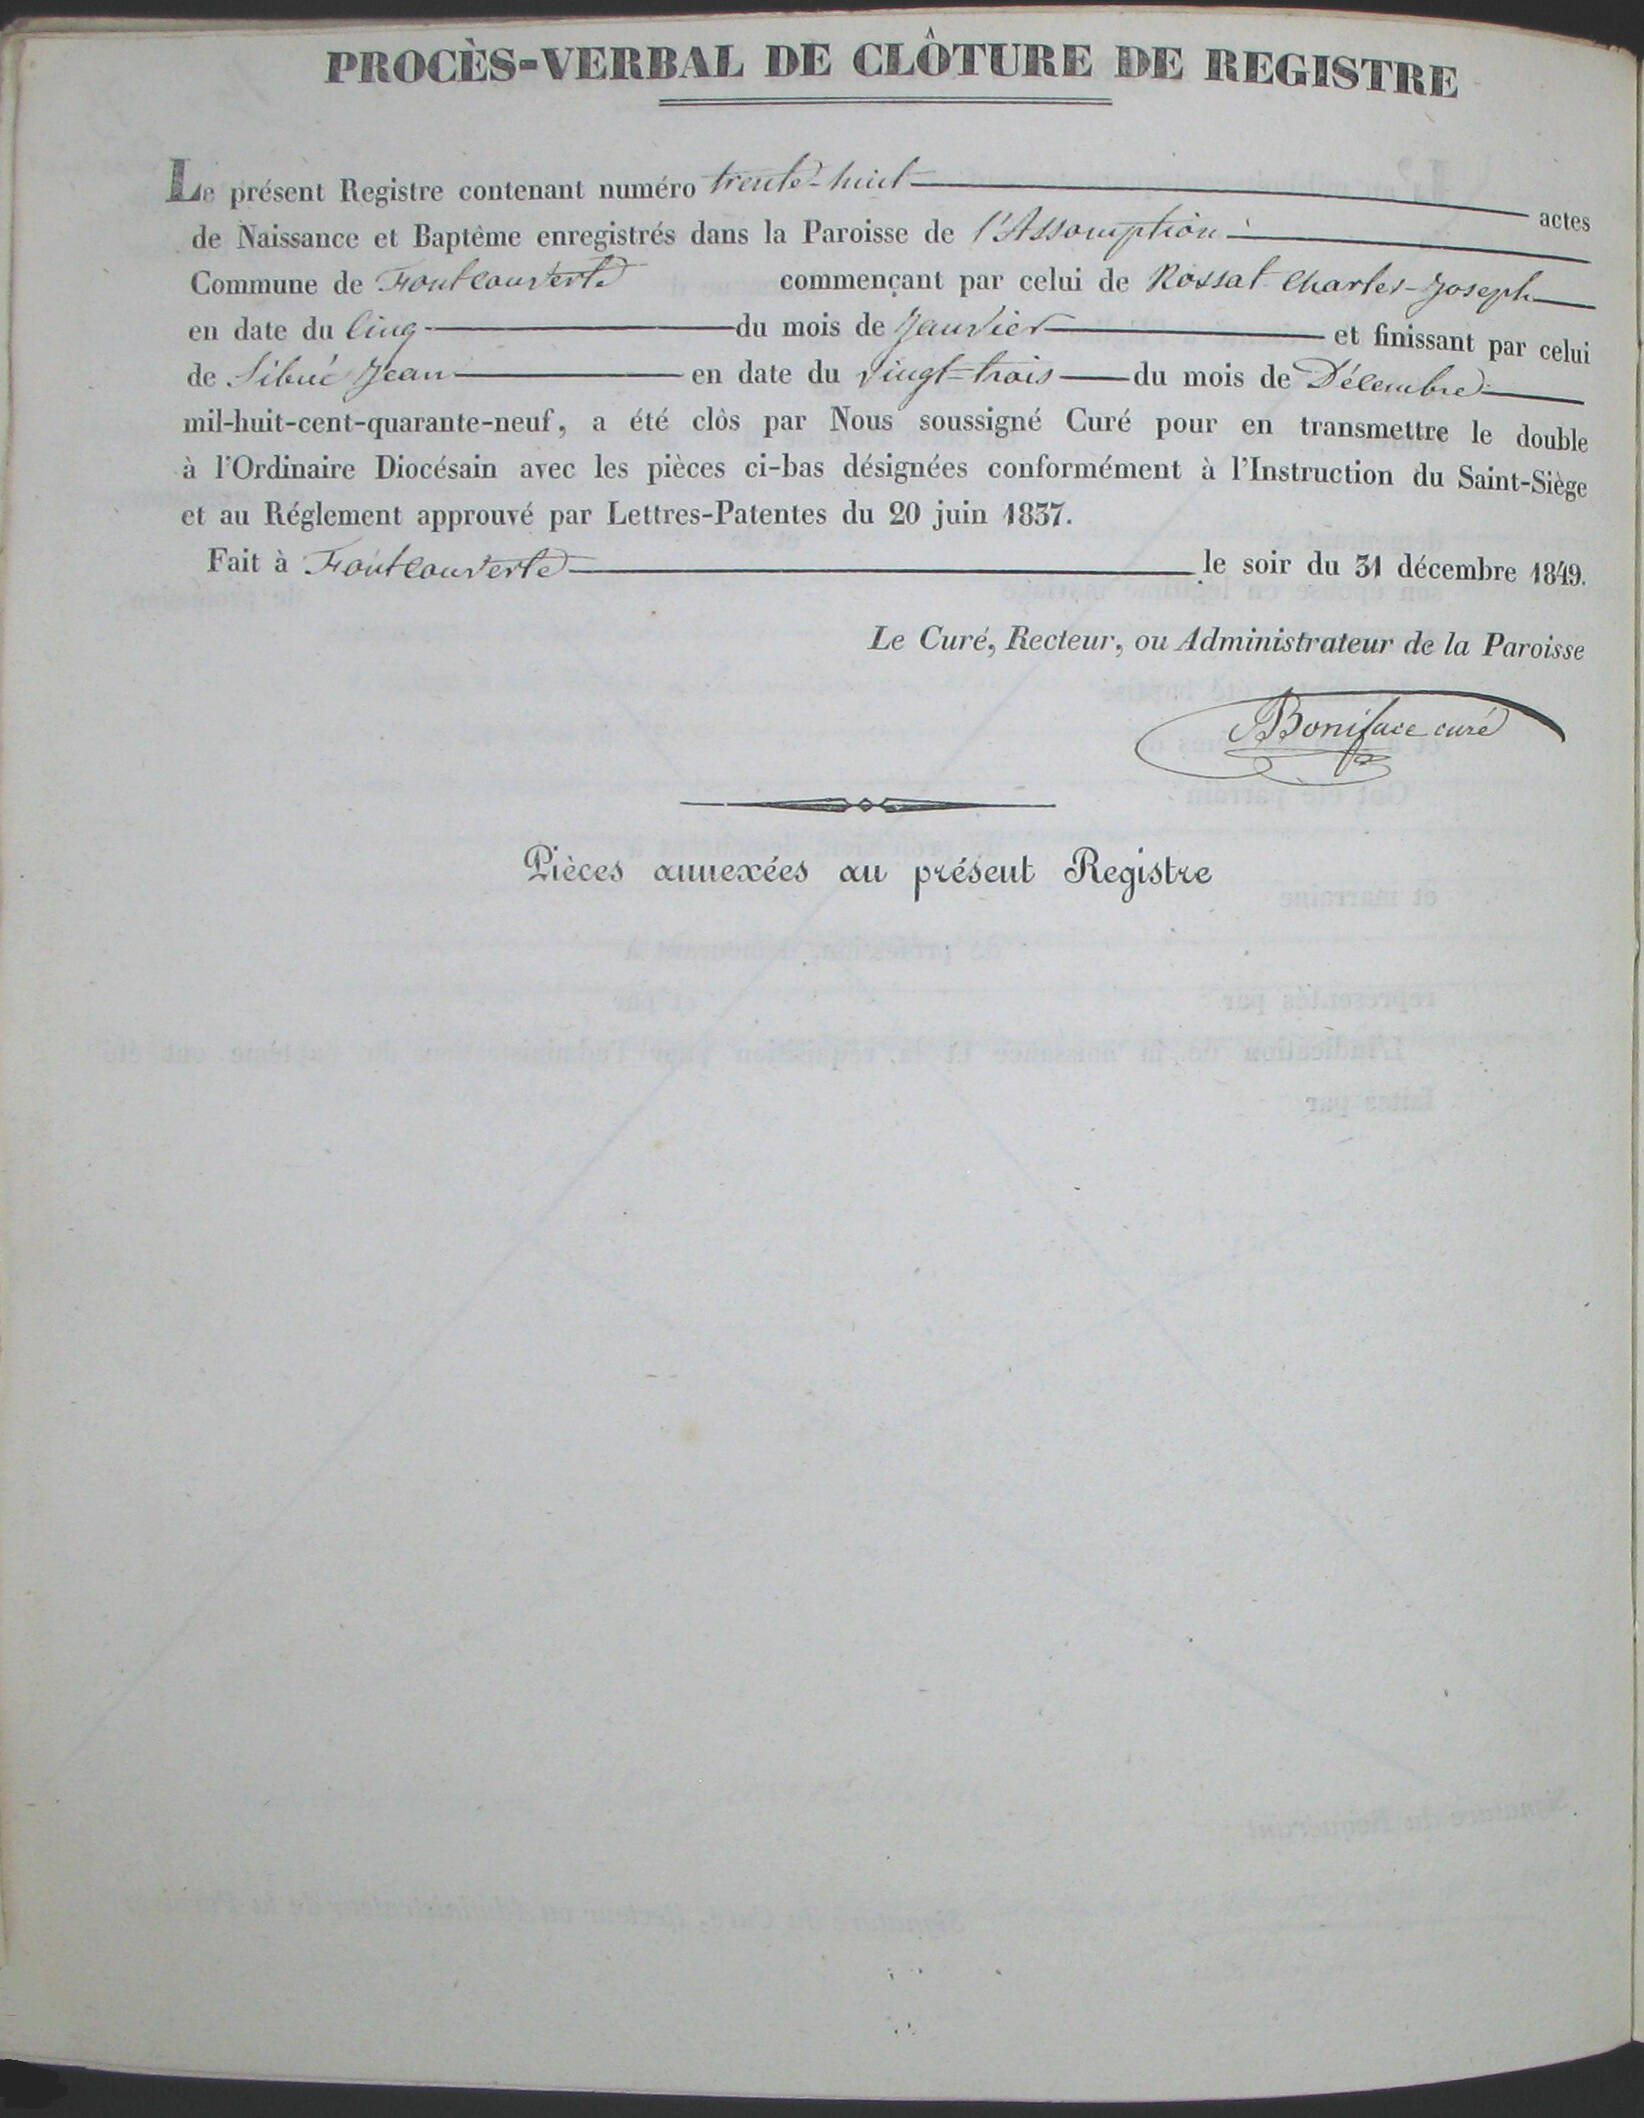 PROCÈS-VERBAL DE CLÔTURE DE REGISTRE
Le présent Registre contenant numéro trente-huit actes
de Naissance et Baptême enregistrés dans la Paroisse de l'Assomption
Commune de Fontcouverte commençant par celui de Rossat Charles-Joseph
en date du cinq du mois de Janvier et finissant par celui
de Sibué Jean en date du vingt-trois du mois de Décembre
mil-huit-cent-quarante-neuf, a été clòs par Nous soussigné Curé pour en transmettre le double
à l'Ordinaire Diocésain avec les pièces ci-bas désignées conformément à l'Instruction du Saint-Siège
et au Réglement approuvé par Lettres-Patentes du 20 juin 1837.
Fait à Fontcouverte le soir du 31 décembre 1849.
Le Curé, Recteur, ou Administrateur de la Paroisse
Boniface curé
Pièces annexées au présent Registre